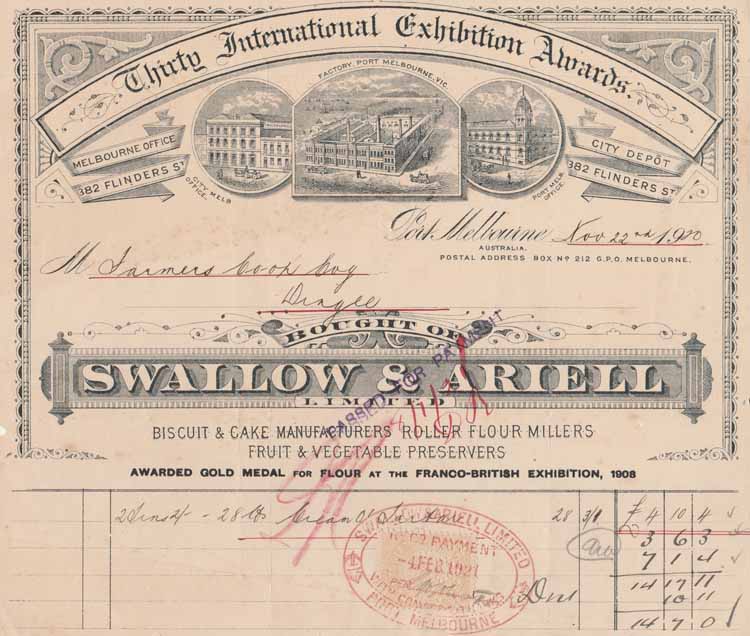 Thirty International Exhibition Awards.
FACTORY, PORT MELBOURNE, VIC.
MELBOURNE OFFICE
382 FLINDERS ST
CITY MELB OFFICE.
PORT MELB. OFFICE.
CITY DEPÔT
382 FLINDERS ST
Port Melbourne Nov 22nd 1920
AUSTRALIA.
POSTAL ADDRESS BOX Nº 212 G.P.O. MELBOURNE.
M Farmers Coop Coy
Dingee
BOUGHT OF
SWALLOW & ARIELL
LIMITED
PASSED FOR PAYMENT
BISCUIT & CAKE MANUFACTURERS ROLLER FLOUR MILLERS
FRUIT & VEGETABLE PRESERVERS
AWARDED GOLD MEDAL FOR FLOUR AT THE FRANCO-BRITISH EXHIBITION, 1908
28 lbs Cream Tartar 28 3/1 £ 4 10 4
3 6 3
7 1 4
14 17 11
10 11
14 7 0
SWALLOW & ARIELL LIMITED
PAYMENT
-4 FEB 1921
PORT MELBOURNE